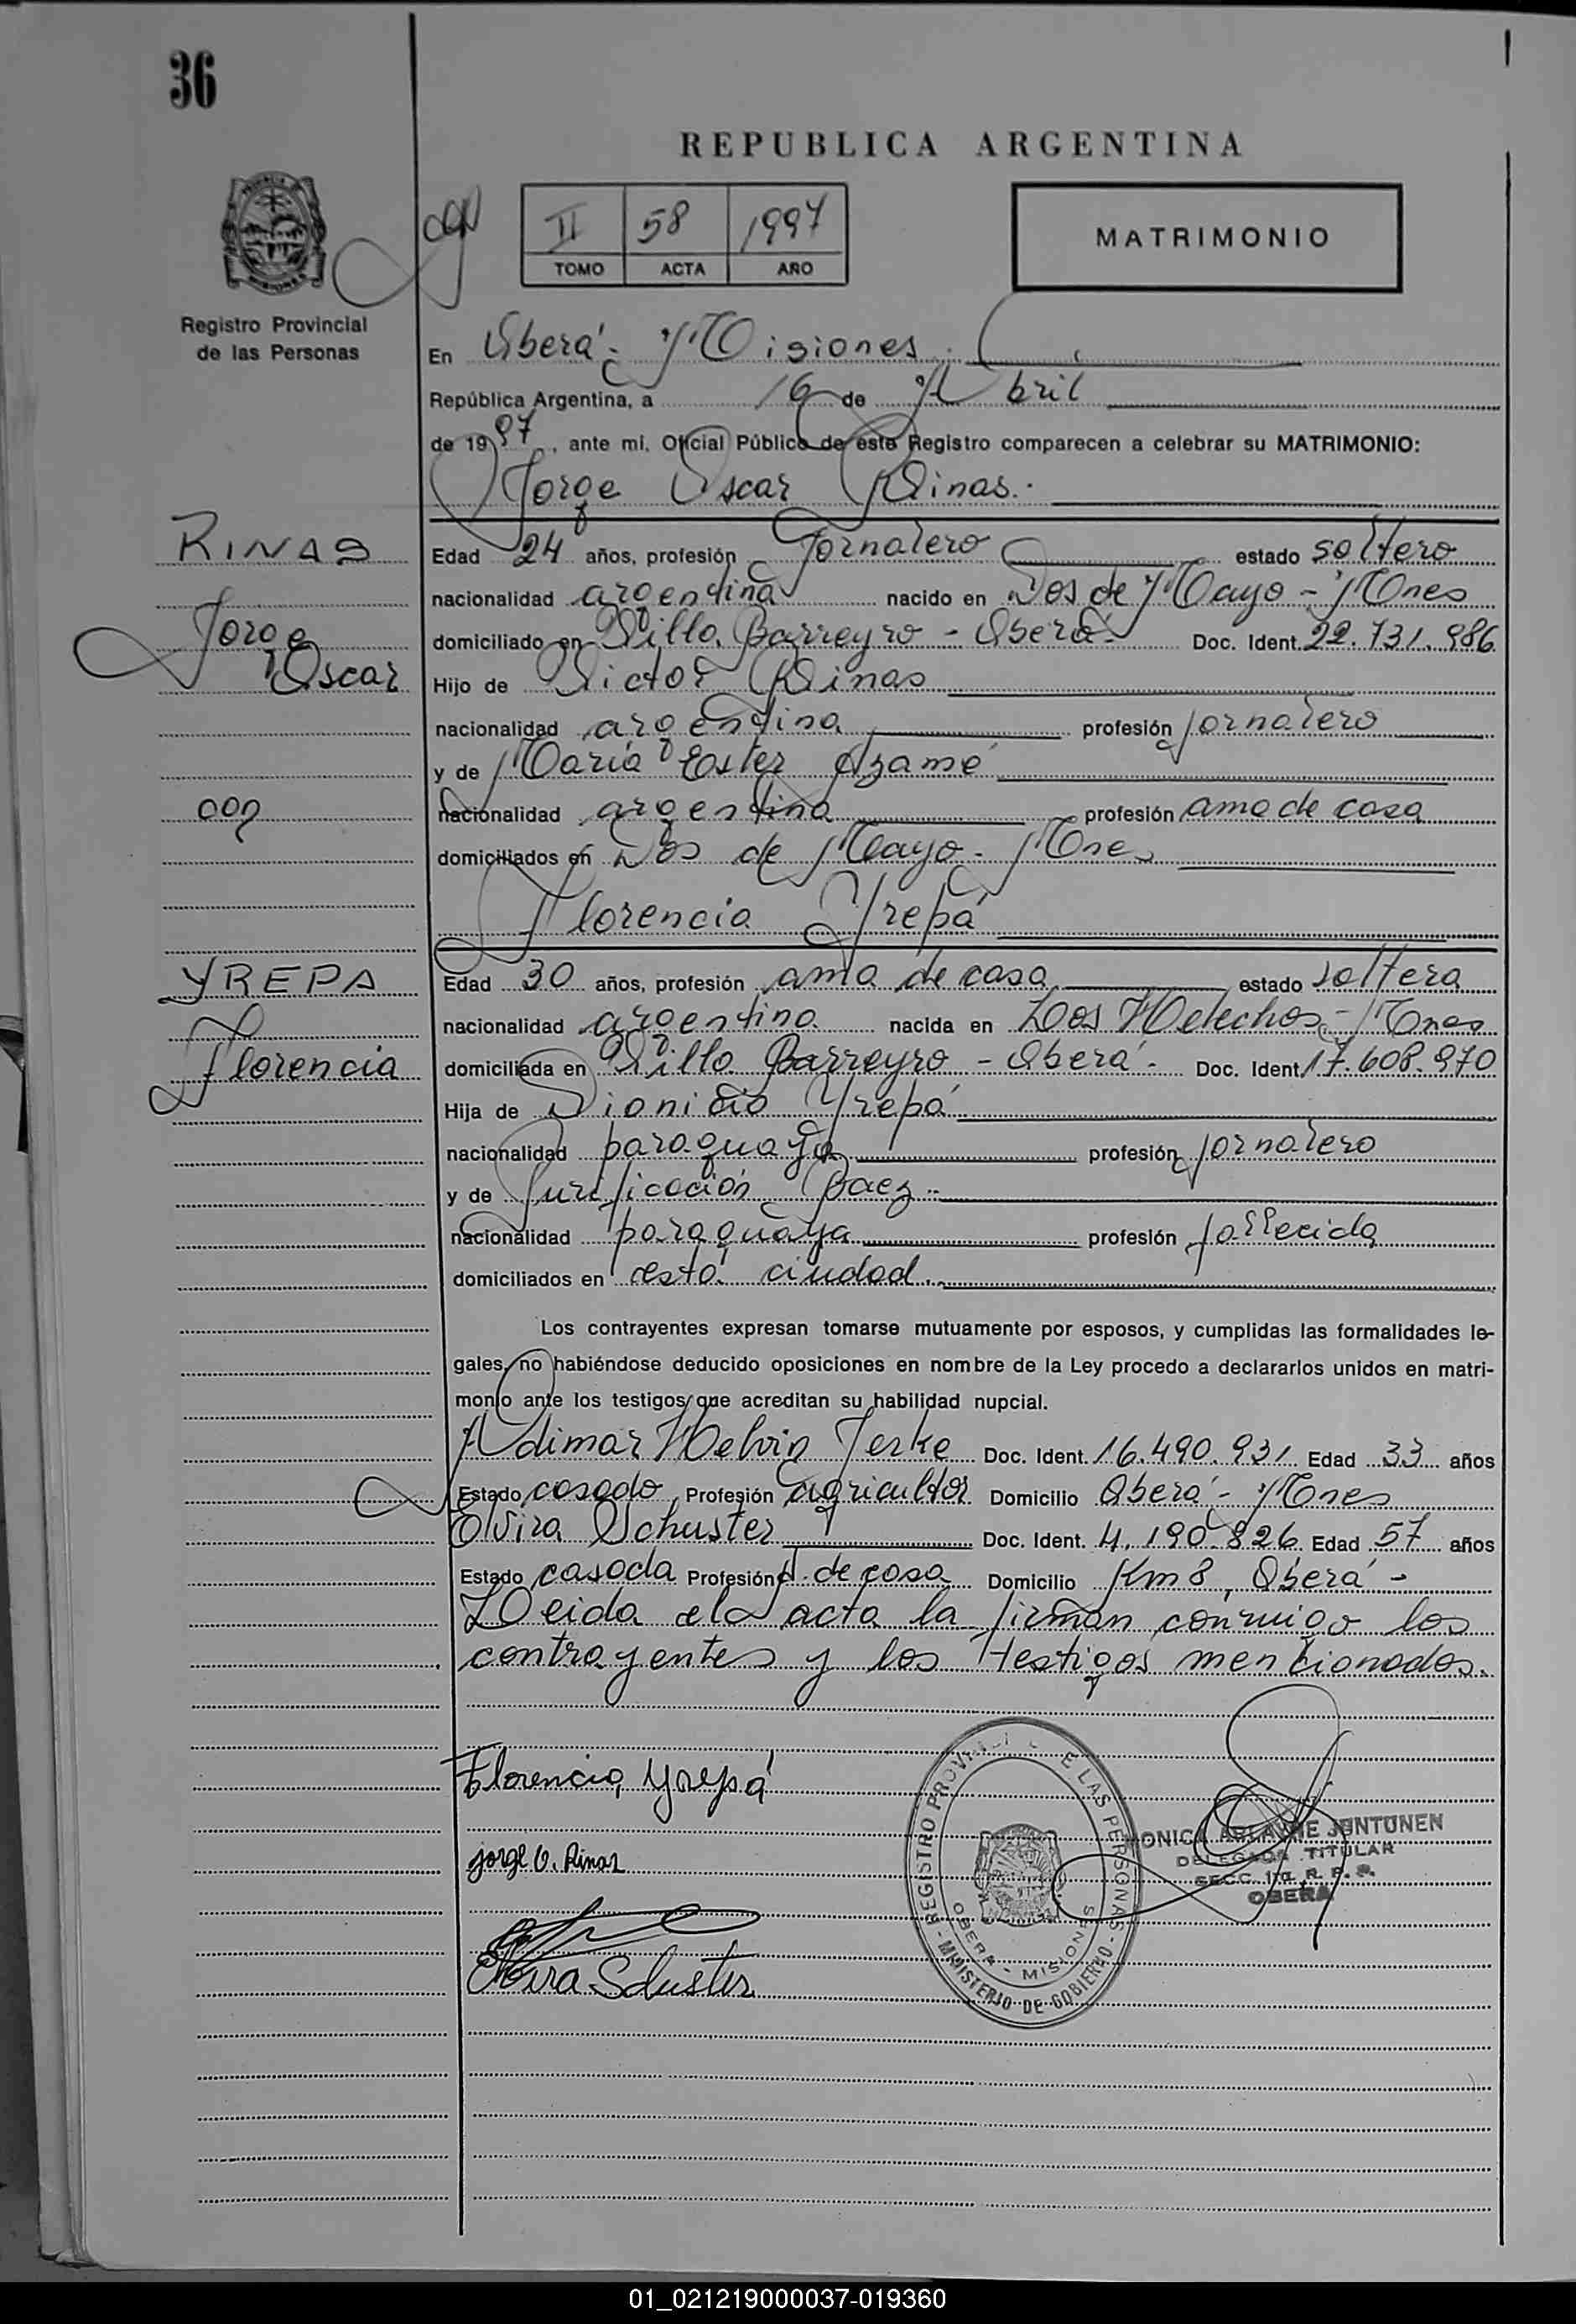 36
REPUBLICA ARGENTINA
II 58 1997
TOMO ACTA AÑO
MATRIMONIO
Registro Provincial
de las Personas
En Oberá - Misiones
República Argentina, a 16 de Abril
de 1997, ante mi, Oficial Público de este Registro comparecen a celebrar su MATRIMONIO:
Jorge Oscar Rinas.-
RINAS
Edad 24 años, profesión Jornalero estado soltero
nacionalidad argentina nacido en Dos de Mayo - Mnes
Jorge
domiciliado en Villa Barreyro - Oberá - Doc. Ident. 22.731.986
Oscar
Hijo de Victor Rinas
nacionalidad argentina profesión jornalero
y de Maria Ester Azame
nacionalidad argentina profesión ama de casa
domiciliados en Dos de Mayo - Mnes
Florencia Yrepá
YREPA
Edad 30 años, profesión ama de casa estado soltera
nacionalidad argentina nacida en Los Helechos - Mnes
Florencia
domiciliada en Villa Barreyro - Oberá - Doc. Ident. 17.608.970
Hija de Dionicio Yrepá
nacionalidad paraguaya profesión jornalero
y de Purificación Baez -
nacionalidad paraguaya profesión fallecida
domiciliados en esta ciudad.
Los contrayentes expresan tomarse mutuamente por esposos, y cumplidas las formalidades le-
gales, no habiéndose deducido oposiciones en nombre de la Ley procedo a declararlos unidos en matri-
monio ante los testigos que acreditan su habilidad nupcial.
Aldimar Helvin Jerke Doc. Ident. 16.490.931 Edad 33 años
Estado casado Profesión agricultor Domicilio Oberá - Mnes
Elvira Schuster Doc. Ident. 4.190.826 Edad 57 años
Estado casada Profesión A. de casa Domicilio Km 8, Oberá -
Leida el acta la firman conmigo los
contrayentes y los testigos mencionados.
Florencia Yrepá
Jorge O. Rinas
Elvira Schuster
REGISTRO PROVINCIAL DE LAS PERSONAS - MINISTERIO DE GOBIERNO -
OBERA - MISIONES
MONICA JONTUNEN
DELEGADA TITULAR
SECC. 1ra. R. P. P.
OBERA
01_021219000037-019360